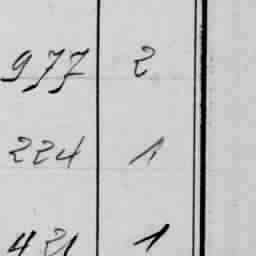 977 2
224 1
421 1